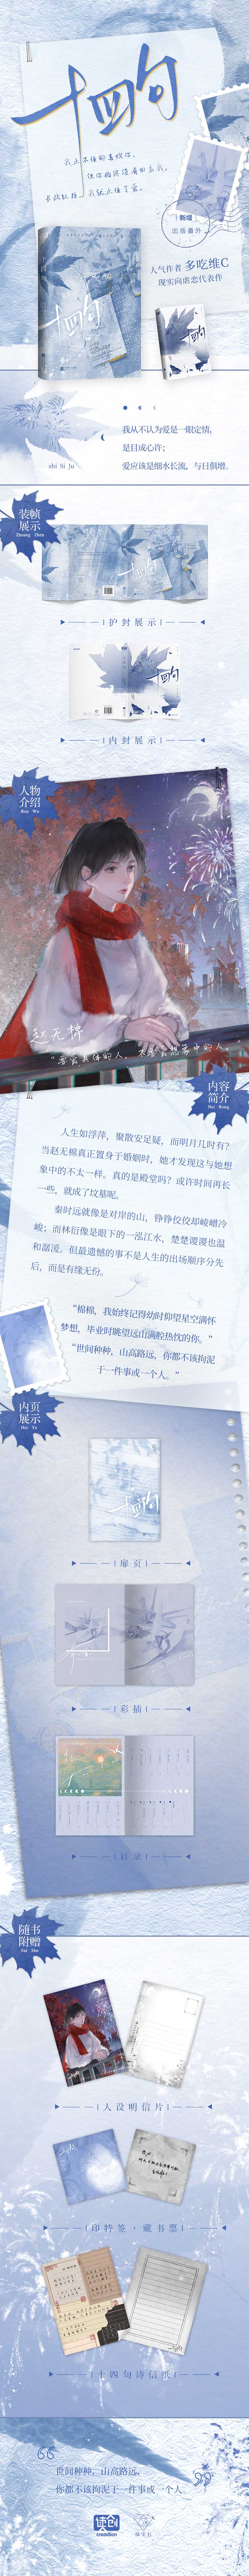 十四句
我止不住的喜欢你，
但你始终没看回应我，
新增
出版番外
人气作者 多吃维C
现实向虐恋代表作
十四句
十四句
我从不认为爱是一眼定情，
是目成心许；
爱应该是细水长流，与日俱增。
shi Si Ju
装帧
展示
十四句
护封展示
十四句
内封展示
人物
介绍
Ren Wu
赵无棉
内容
简介
Nei Rong
人生如浮萍，聚散安足疑，而明月几时有？
当赵无棉真正置身于婚姻时，她才发现这与她想
象中的不太一样。真的是殿堂吗？或许时间再长
一些，就成了坟墓呢。
秦时远就像是对岸的山，铮铮佼佼却崚嶒冷
峻；而林衍像是眼下的一泓江水，楚楚谡谡也温
和潺湲。但最遗憾的事不是人生的出场顺序分先
后，而是有缘无份。
“棉棉，我始终记得幼时仰望星空满怀
梦想，毕业时眺望远山满腔热忱的你。”
“世间种种，山高路远，你都不该拘泥
于一件事或一个人。”
内页
展示
Nei Ye
十四句
扉页
彩插
目录
随书
附赠
Sui Shu
人设明信片
印特签·藏书票
十四句诗信纸
世间种种，山高路远，
你都不该拘泥于一件事或一个人。
读创
creation
绿宝石